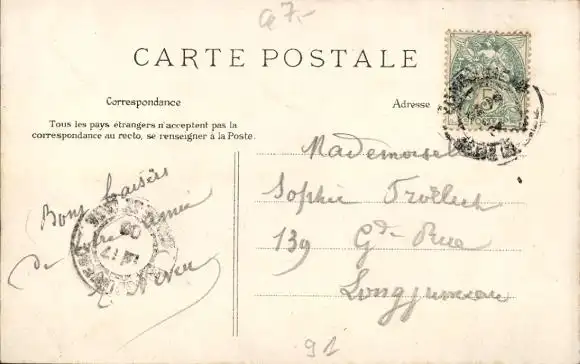 a7.-
CARTE POSTALE
Correspondance
Adresse
Tous les pays étrangers n'acceptent pas la
correspondance au recto, se renseigner à la Poste.
Mademoiselle
Sophie
139 Gde Rue
Longjumeau
Bons baisers
de votre amie
91